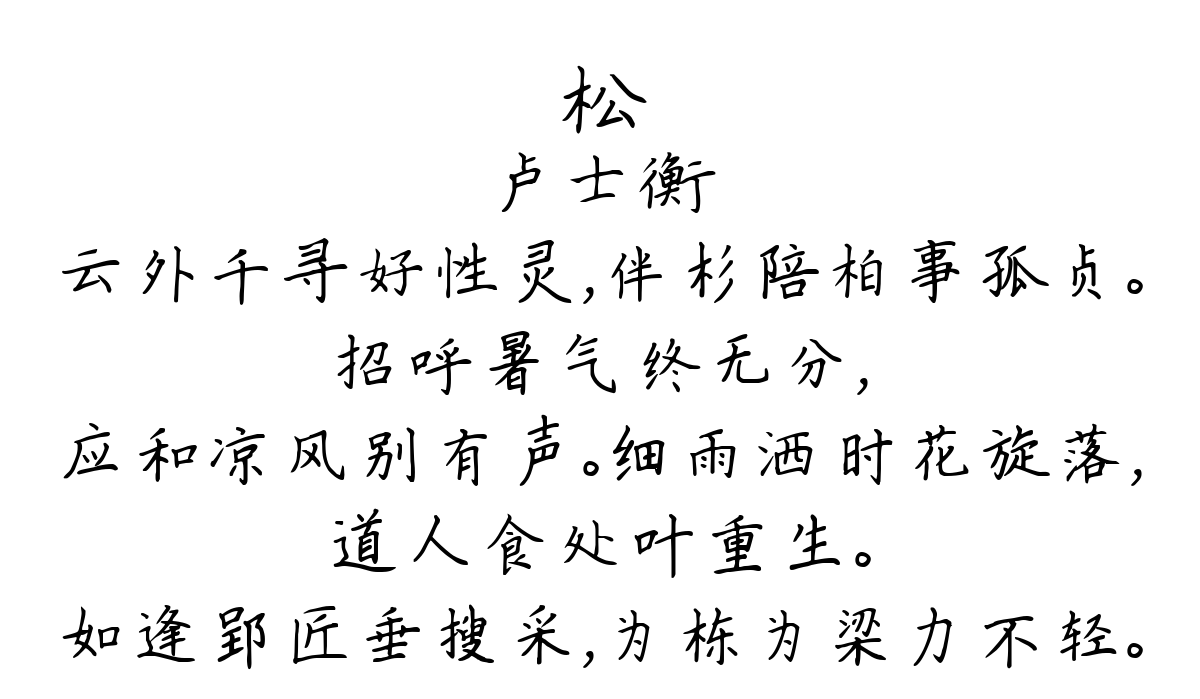 松
卢士衡
云外千寻好性灵,伴杉陪柏事孤贞。
招呼暑气终无分,
应和凉风别有声。细雨洒时花旋落,
道人食处叶重生。
如逢郢匠垂搜采,为栋为梁力不轻。